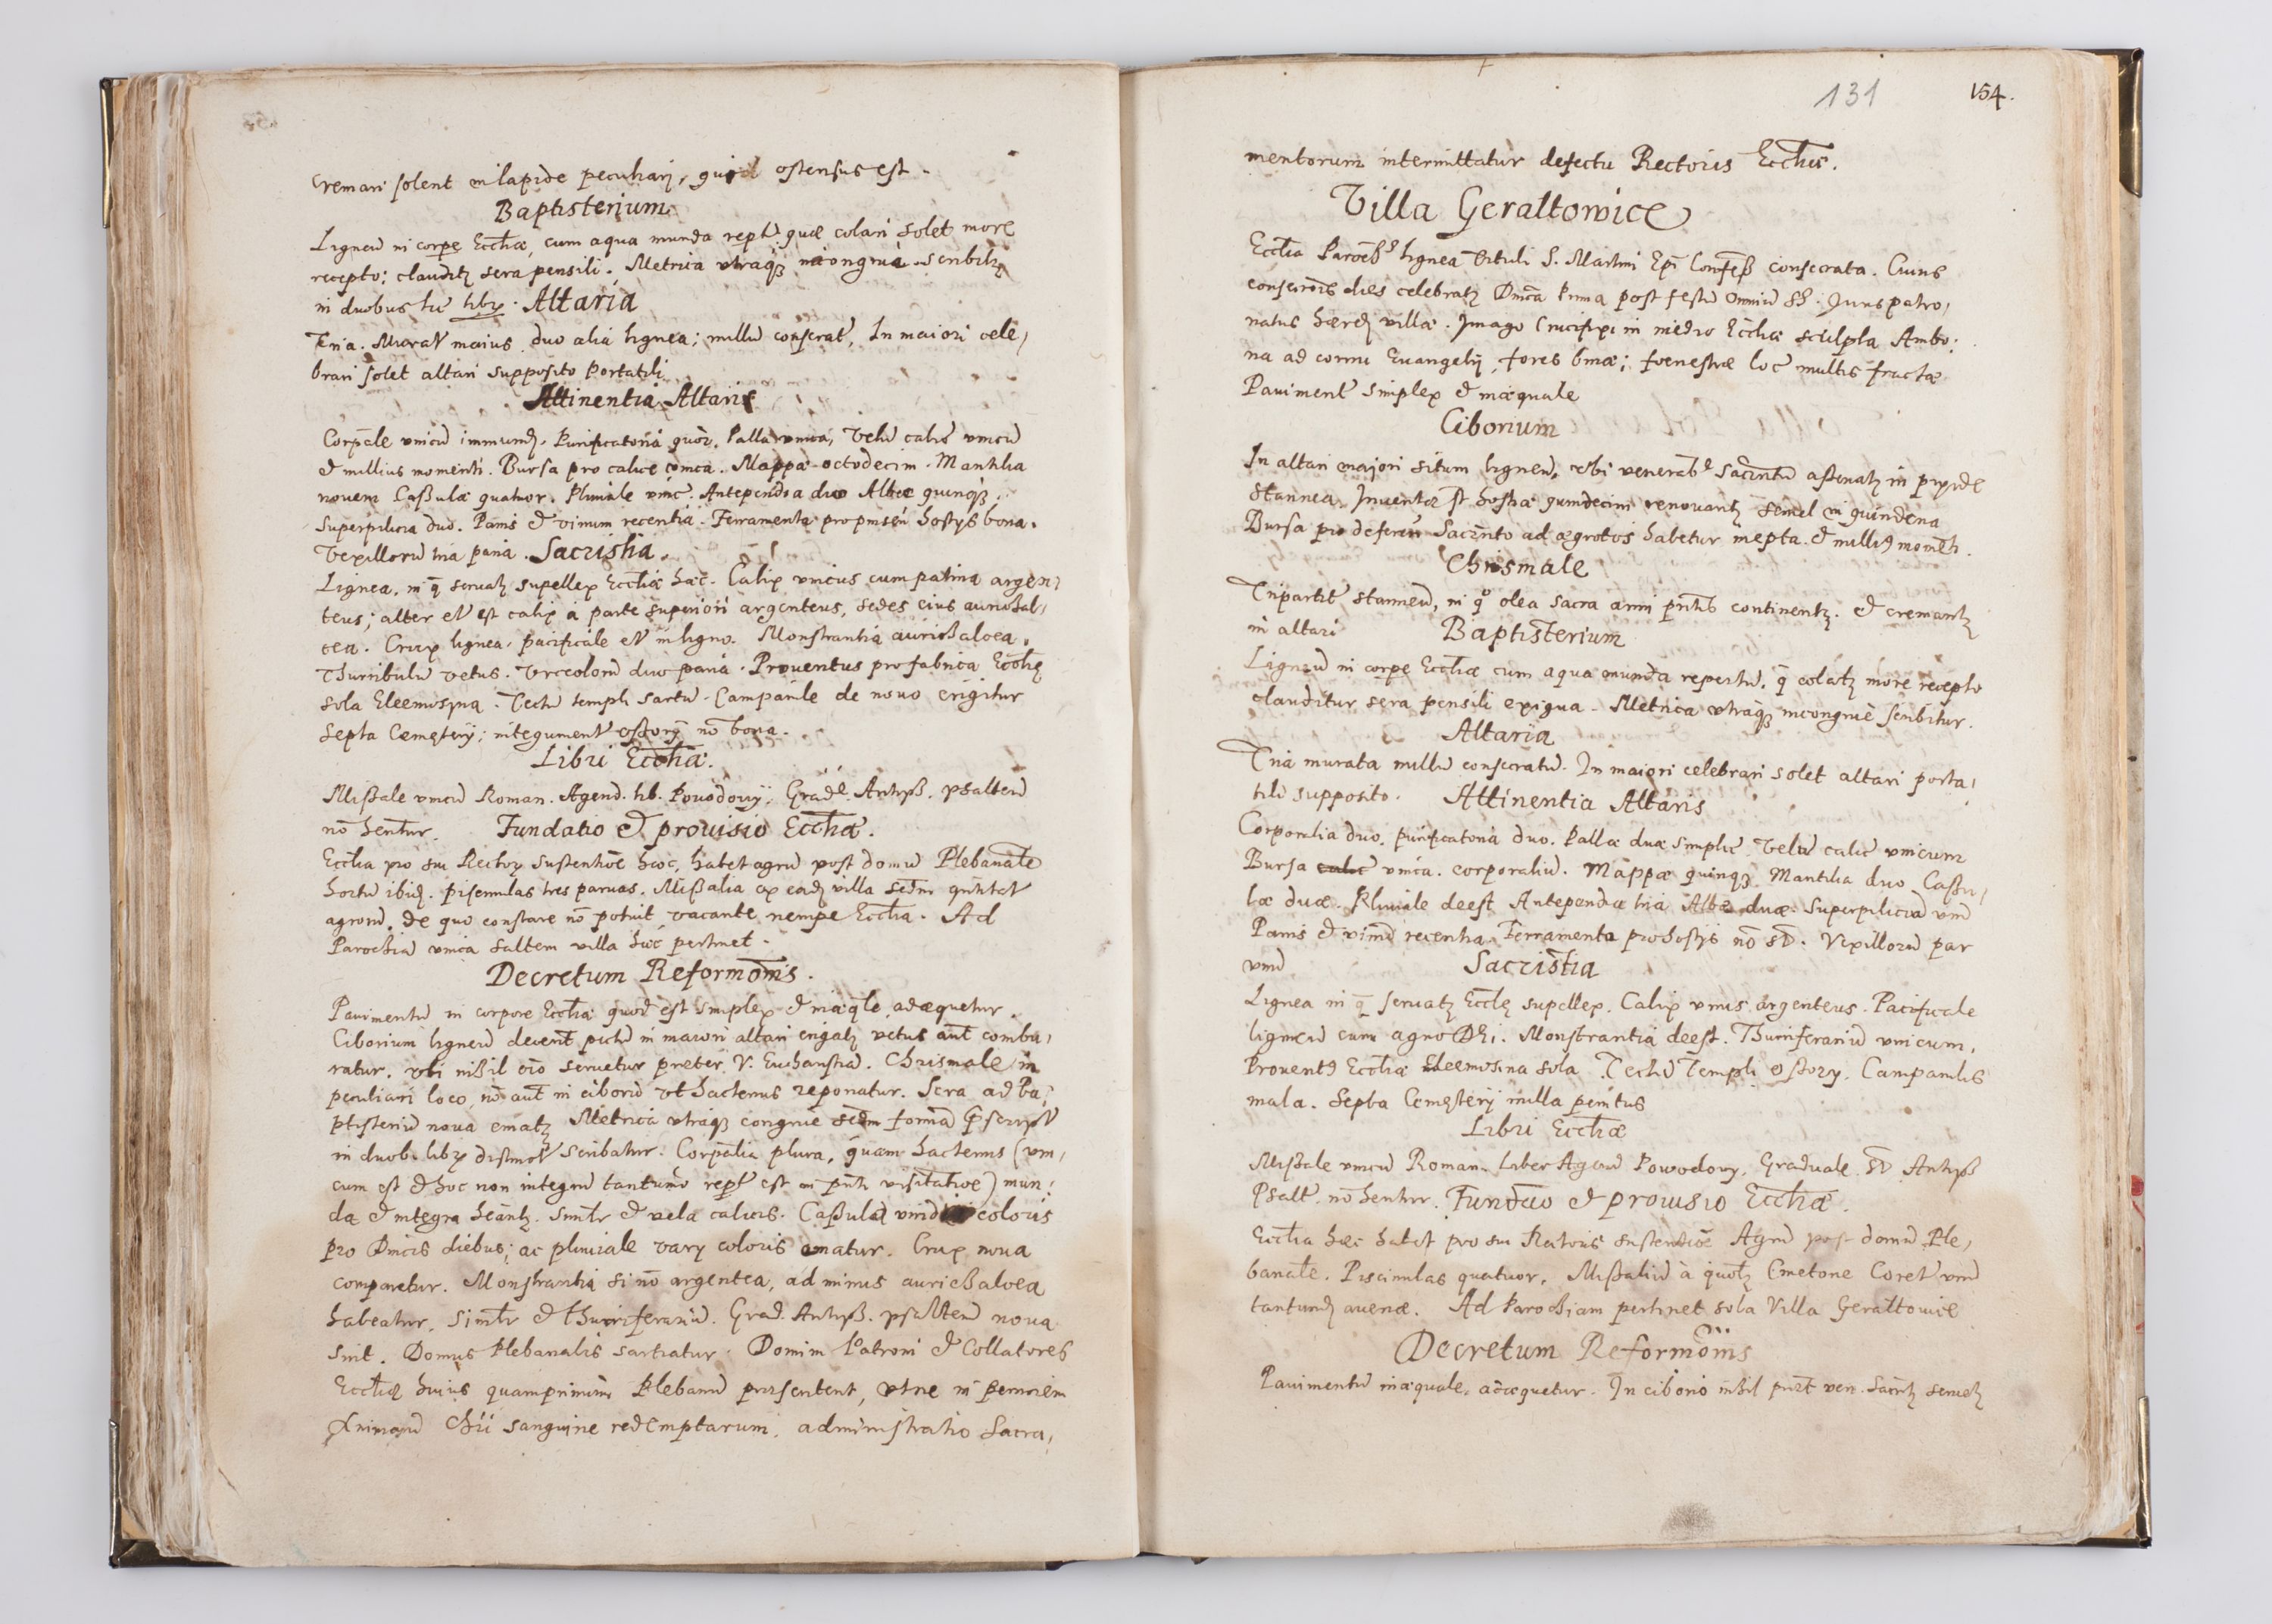 cremari solent in lapide peculiari, qui ostensus est.
Baptisterium
Ligneū in corpe Eccliæ, cum aqua munda rept̄ quæ colari solet more
recepto; claudit̄ sera pensili. Metrica utraq̨ incongruè scribit̄
in duobus libr̄. Altaria
Tria. Murat̄ maius duo alia lignea; nullū consecrat̄, In maiori cele,
brari solet altari supposito Portatili
Attinentia Altaris
Corpale unicū immund̄. Purificatoria quor̄. Palla unica, Velū calic̄ unicū
et nullius momenti. Bursa pro calice unica. Mappæ octodecim. Mantilia
novem Casulæ quatuor. Pluviale unic̄. Antependia duo Albæ quinq̨.
Superpilicia duo. Panis et vinum recentia. Ferramenta pro hostijs bona.
Vexillorū tria paria. Sacristia.
Lignea, in q̄ servat̄ supellex Eccliæ hæc. Calix unicus cum patina argen,
teus; alter et̄ est calix à parte superiori argenteus, sedes eius aurichal,
cea. Crux lignea, pacificale et̄ in ligno. Monstrantia aurichalcea.
Thurribulū vetus. Urceolorū duo paria. Proventus pro fabrica Eccliæ
sola Eleemosyna. Tectū templi sartū. Campanile de novo erigitur
Septa Cemęterij; integument̄ ossorij nō bona.
Libri Eccliæ.
Missale unicū Roman. Agend. lib. Powodowij; Grad̄e. Antiph. psalteriū
nō hentur. Fundatio et provisio Eccliæ.
Ecclia pro sui Rectorȝ sustentiōe hæc, habet agrū post domū Plebanalē
hortū ibid̄. piscinulas tres parvas. Missalia ex ead̄ villa secdm quntitat̄
agrorū, de quo constare nō potuit vacante nempe Ecclia. Ad
Parochiā unica saltem villa hæc pertinet.
Decretum Reformōnis.
Pavimentū in corpore Eccliæ quod est simplex et inæqle, adæquetur.
Ciborium ligneū decent̄ pictū in maiori altari erigat̄ vetus aut̄ combu,
ratur. ubi nihil oīo servetur preter V. Eucharistiā. Chrismale in
peculiari loco, nō aut̄ in ciboriū ut hactenus reponatur. Sera ad Ba,
ptisteriū nova emat̄ Metrica utraq̨ congruè secdm formā
in duob. librȝ distinct̄ scribatur. Corpalia plura, quam hactenus (uni,
cum est et hoc non integrū tantumō rept̄ est in pn̄ti visitatioe) mun,
da et integra heant̄. Simlr et vela calicis. Casula viridis coloris
pro Dnicis diebus; ac pluviale varij coloris ematur. Crux nova
comparetur. Monstrantia si nō argentea, ad minus aurichalcea
habeatur. Simlr et thurriferariū. Grad. Antiph. psalteriū nova
sint. Domus Plebanalis sartiatur. Domini Patroni et Collatores
Eccliæ huius quamprimum Plebanū præsentent, ut ne in perniciem
Animarū Chri sanguine redemptarum, administratio Sacra,
131
154.
mentorum intermittatur defectu Rectoris Eccliæ.
Villa Geraltowice
Ecclia Paroch̄s lignea Tituli S. Martini Epi Confess consecrata. Cuius
consecrōnis dies celebrat̄ Dnica Prima post festū Omniū SS. Jus patro,
natus hæred̄ villæ. Imago Crucifixi in medio Eccliæ sculpta Ambo,
na ad cornu Evangelij, fores binæ; foenestræ loc̄ multis fractæ
Paviment̄ simplex et inæquale
Ciborium
In altari majori situm ligneū, ubi venerabe Sacrntū asservat̄ in pyxide
stannea. Inventæ st̄ hostiæ quindecim renovant̄ semel in quindena
Bursa pro deferen Sacrnto ad ægrotos habetur inepta et nulliq momēti.
Chrismale
Tripartit̄ stanneū, in qo olea sacra anni pn̄tis continent̄. et cremant̄
in altari Baptisterium
Ligneū in corpe Eccliæ cum aqua munda repertū, q̄ colat̄ more recepto
clauditur sera pensili exigua. Metrica utraq̨ incongruè scribitur.
Altaria
Tria murata nullū consecratū. In maiori celebrari solet altari porta,
tili supposito. Attinentia Altaris
Corporalia duo, purificatoria duo. Pallæ duæ simplic̄ Velū calic̄ unicum
Bursa unica. corporaliū. Mappæ quinq̨ Mantilia duo Casu,
læ duæ. Pluviale deest Antependia tria Albæ duæ. Superpiliciū unū
Panis et vinū recentia. Ferramenta pro hostijs nō st̄. Vexillorū par
unū Sacristia
Lignea in q̄ servat̄ Eccliæ supellex. Calix unus argenteus. Pacificale
ligneū cum agno Dei. Monstrantia deest. Thurriferariū unicum,
Provent̄q Eccliæ Eleemosina sola. Tectū Templi ossorȝ, Campanilis
mala. Septa Cemęterij nulla penitus
Libri Eccliæ
Missale unicū Roman. Liber Agend Powodowȝ. Graduale st̄ Antiph
Psalt̄. nō hentur. Fundatio et provisio Eccliæ.
Ecclia hæc habet pro sui Rectoris sustentiōe Agrū post domū Ple,
banalē. Piscinulas quatuor. Missaliū à quot̄ Cmetone Coret̄ unū
tantund̄ avenæ. Ad Parochiam pertinet sola Villa Geraltowice
Decretum Reformōnis
Pavimentū inæquale, adæquetur. In ciborio nihil præt̄ ven. Sacrn̄t̄ servet̄